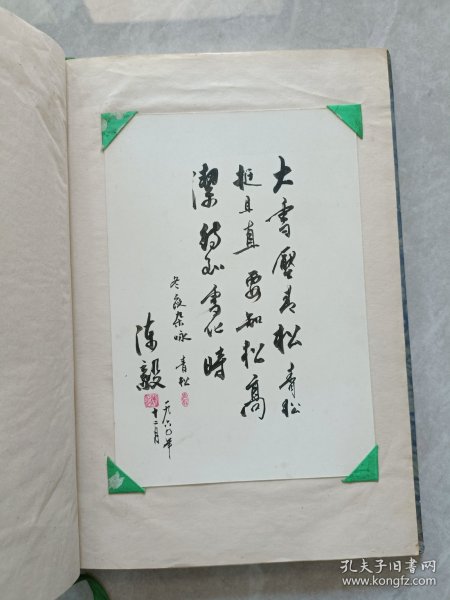 大雪壓青松青松
挺且直要知松高
潔待到雪化時
冬夜杂咏 青松
陳毅
一九六〇年
十二月
孔夫子旧书网
www.kongfz.com